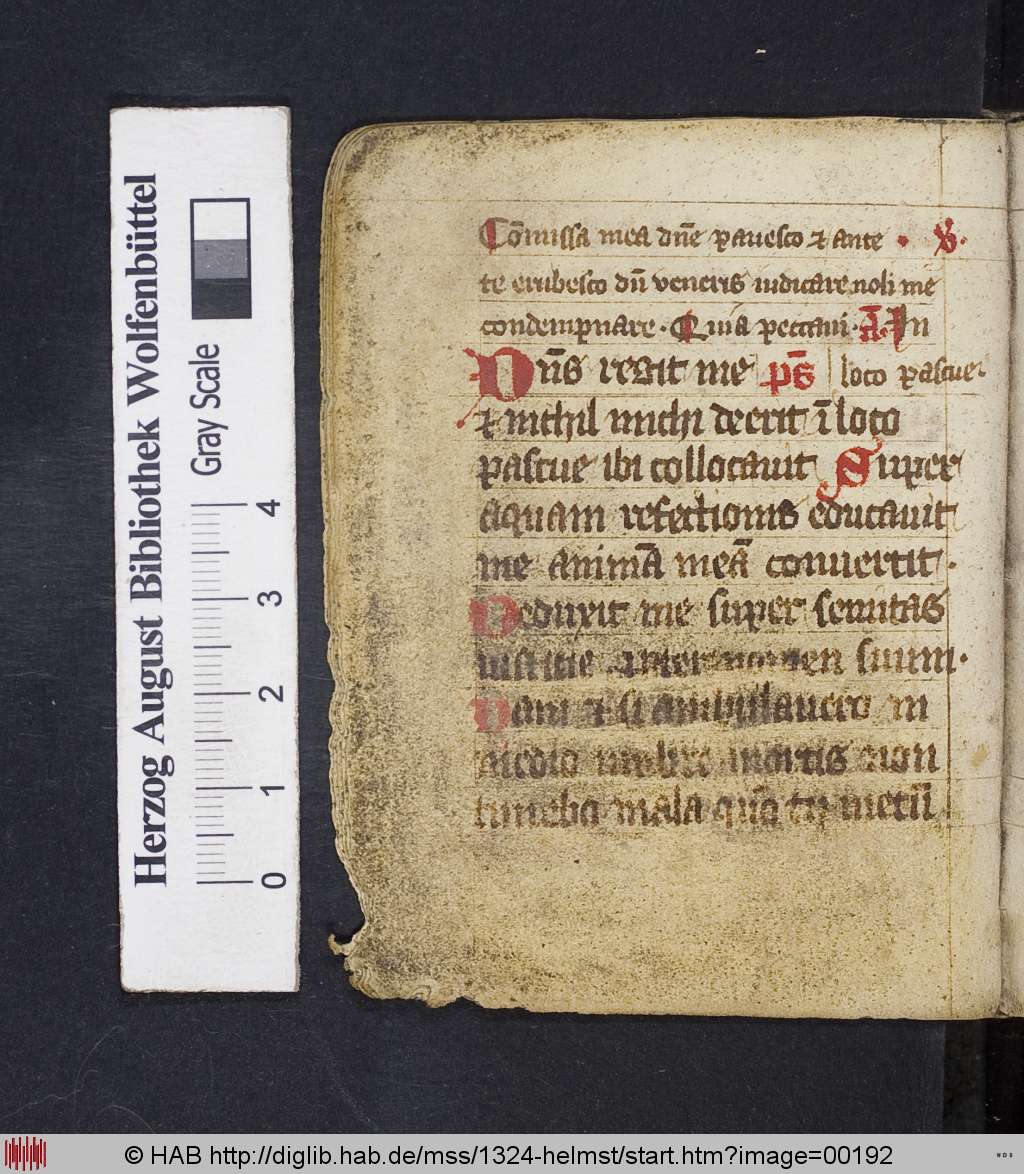 Herzog August Bibliothek Wolfenbüttel
Gray Scale
0 1 2 3 4
Cōmissa mea dn̄e pauesco ⁊ ante · V̷·
te erubesco dū veneris iudicare noli me
condempnare · Quia peccaui · A̅ In
Dn̄s regit me p̄s loco pascue
⁊ nichil michi deerit ī loco
pascue ibi collocauit Super
aquam refectionis educauit
me animā meā conuertit ·
Deduxit me super semitas
iusticie nomen suum ·
Nam ⁊ si ambulauero in
medio mortis non
timebo mala qm̄ tu mecū
© HAB http://diglib.hab.de/mss/1324-helmst/start.htm?image=00192